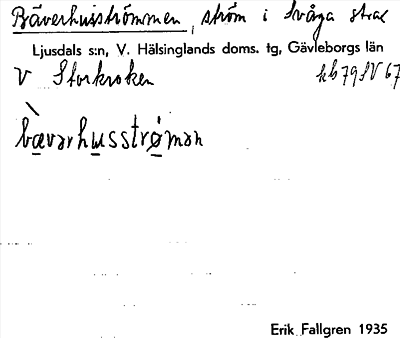 Bäverhusströmmen, ström i Svåga strax
Ljusdals s:n, V. Hälsinglands doms. tg, Gävleborgs län
V Storkroken kb 79 SV 67
bævərhusstrømən
Erik Fallgren 1935